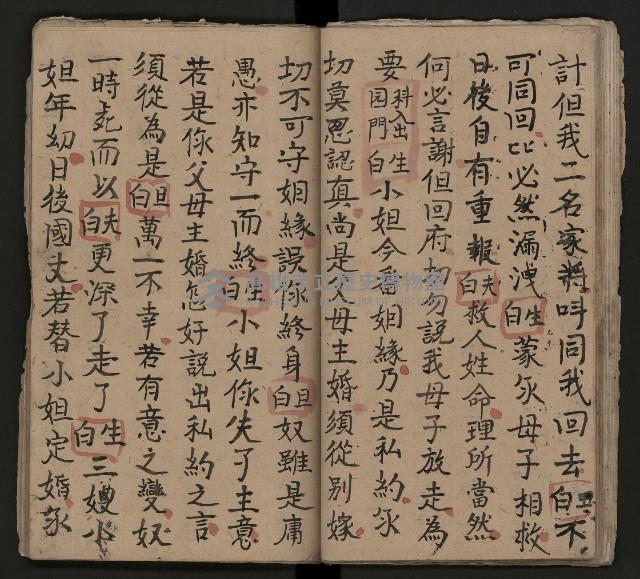 計但我二名家將叫同我回去白旦不
可同回比必然漏洩白生蒙你母子相救
日後自有重報白夫救人姓命理所當然
何必言謝但回府切勿說我母子放走為
要科入出生园門白小姐今番姻緣乃是私約你
切莫思認真尚是父母主婚須從別嫁
切不可守姻緣誤你終身白旦奴雖是庸
愚亦知守一而終白生小姐你失了主意
若是你父母主婚怎好説出私約之言
須從為是白旦萬一不幸若有意之變奴
一時死而以白夫更深了走了白生三嫂小
姐年幼日後國丈若替小姐定婚你